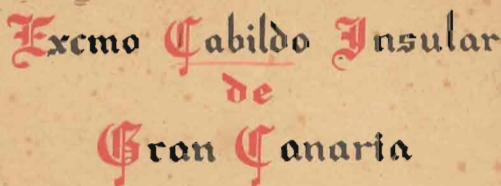 Excmo Cabildo Insular
de
Gran Canaria